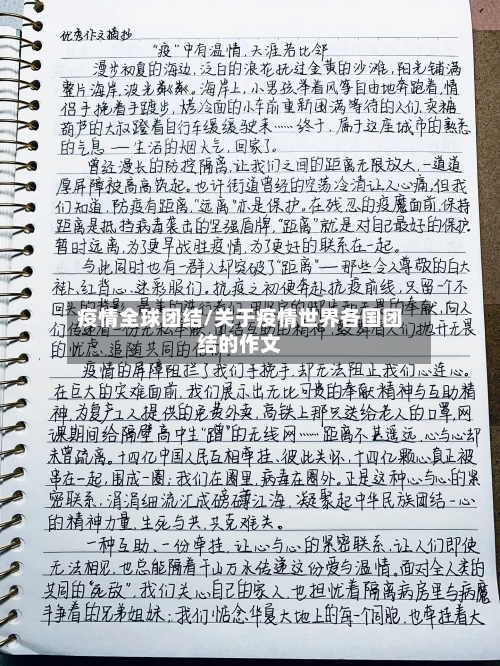 优秀作文摘抄
“疫”中有温情,天涯若比邻
漫步初夏的海边,泛白的浪花抚过金黄的沙滩,阳光铺满
整片海岸,波光粼粼。海岸上,小男孩举着风筝自由地奔跑着,情
侣手挽着手踱步,烤冷面的小车前重新围满等待的人们,卖糖
葫芦的大叔蹬着自行车缓缓驶来……终于,属于这座城市的熟悉
的气息——生活的烟火气,回家了。
曾经漫长的防控隔离,让我们之间的距离无限放大,一道道
厚屏障被高高筑起。也许街道曾经的空荡冷清让人心痛,但我
们知道,防疫有距离,“远离”亦是保护。在残忍的疫魔面前,保持
距离是抵挡病毒袭击的坚强盾牌,“距离”就是对自己最好的保护。
暂时远离,为了更早战胜疫情,为了更好的联系在一起。
与此同时也有一群人却突破了“距离”——那些令人尊敬的白大
褂、红背心、迷彩服们。抗疫之初便奔赴抗疫前线,只留一个不
疫情全球团结/关于疫情世界各国团
结的作文
的忧虑,追随共同的信
疫情的屏障阻拦了我们手挽手,却无法阻止我们心连心。
在巨大的灾难面前,我们展示出无比可贵的奉献精神与互助精
神,为复产工人提供的免费外卖,高铁上那只送给老人的口罩,网
课期间给隔壁高中生“蹭”的无线网……距离不甚遥远,心与心却
未曾疏离。十四亿中国人民互相牵挂、彼此关怀,十四亿颗心真正被
串在一起,围成一圈;我们在圈里,病毒在圈外。正是这种心与心的紧
密联系,涓涓细流汇成磅礴江海,凝聚起中华民族团结一心
的精神力量,生死与共,共克难关。
一种互助、一份牵挂,让心与心的紧密联系,让人们即使
无法相见,也总能隔着千山万水传递这份爱与温情,面对全人类的
共同的“死敌”,我们关心自己的家人,也担忧着隔离病房里与病魔
斗争着的兄弟姐妹;我们惦念华夏大地上的每一个同胞,也牵挂着大